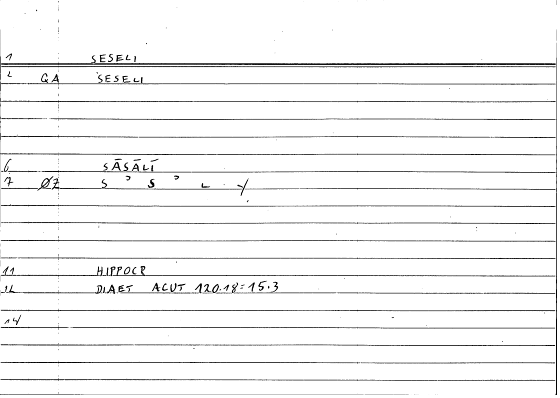 1 SESELI
2 GA SESELI
6 SĀSĀLĪ
7 ØZ S ʾ S ʾ L Y
11 HIPPOCR
12 DIAET ACUT 120.18=15.3
14